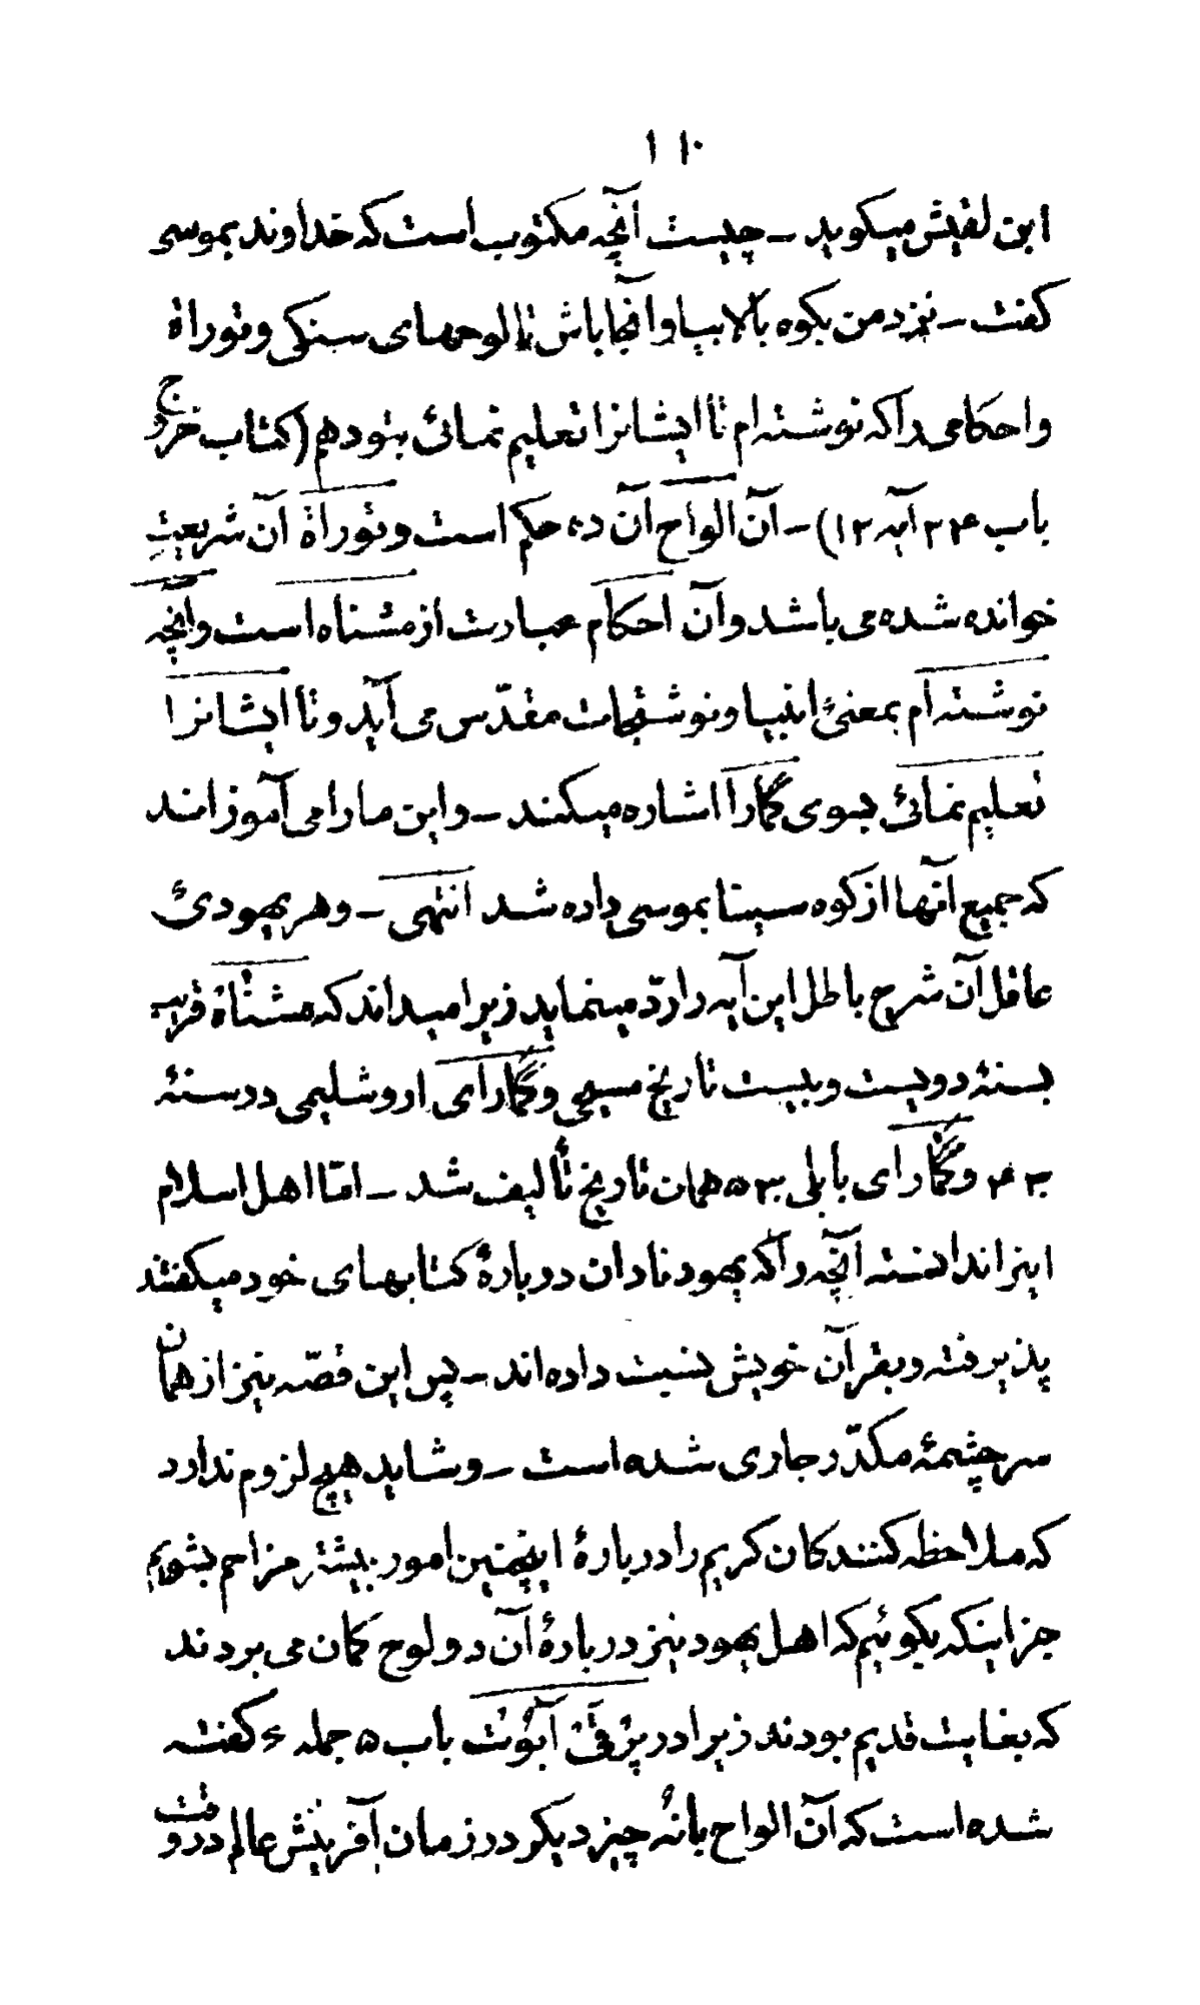 ۱۱۰
ابن لقیش میکوید ـ چیست آنچه مکتوب است که خداوند بموسی
کفت ـ نزد من بکوه بالا بیا و آنجا باش تا لوحهای سنکی و توراة
و احکامی را که نوشته ام تا ایشانرا تعلیم نمائی بتو دهم (کتاب خروج
باب ۲۴ آیه ۱۲) ـ آن الواح آن ده حکم است و توراة آن شریعت
خوانده شده می باشد و آن احکام عبارت از مشناه است و آنچه
نوشته ام بمعنئ انبیا و نوشتهجات مقدّس می آید و تا ایشانرا
تعلیم نمائی بسوی گمارا اشاره میکند ـ و این ما را می آموزانند
که جمیع آنها از کوه سینا بموسی داده شد انتهی ـ و هر یهودئ
عاقل آن شرح باطل این آیه را ردّ مینماید زیرا میداند که مشناة قریب
بسنۀ دویست و بیست تاریخ مسیحی و گمارای اروشلیمی در سنۀ
۴۳۰ و گمارای بابلی ۵۳۰ همان تاریخ تألیف شد ـ امّا اهل اسلام
اینرا ندانسته آنچه را که یهود نادان دربارۀ کتابهای خود میکفتند
پذیرفته و بقرآن خویش نسبت داده اند ـ پس این قصّه نیز از همان
سرچشمۀ مکدّر جاری شده است ـ و شاید هیچ لزوم ندارد
که ملاحظه کنندکان کریم را دربارۀ اینچنین امور بیشتر مزاحم بشویم
جز اینکه بکوئیم که اهل یهود نیز دربارۀ آن دو لوح کمان می بردند
که بغایت قدیم بودند زیرا در پرقی آبوت باب ۵ جمله ۶ کفته
شده است که آن الواح با نه چیز دیکر در زمان آفرینش عالم در وقت